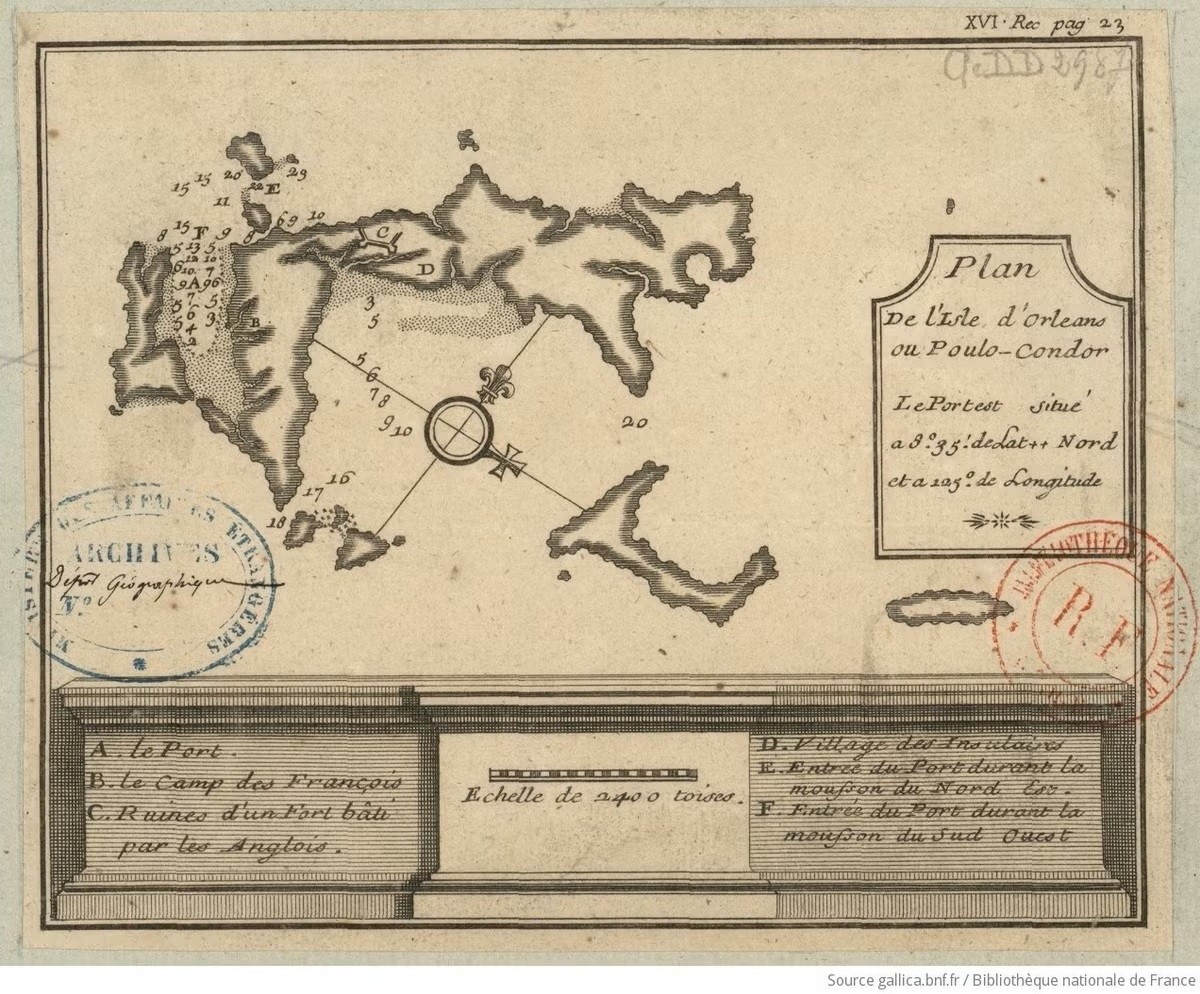 XVI. Rec pag 23
Ge DD 2987
Plan
De l'Isle d'Orleans
ou Poulo-Condor
Le Port est situé
a 8°. 35'. de Lat++ Nord
et a 125°. de Longitude
23
20
15
15
22
E
11
10
9
6
8
9
F
15
8
5
13
5
12
10
6
10
7
9
A
9
6
7
5
5
6
3
5
4
2
B
C
D
3
5
5
6
7
8
9
10
20
16
17
18
MINISTÈRE DES AFFAIRES ÉTRANGÈRES
ARCHIVES
Dépôt Géographique
N°.
BIBLIOTHÈQUE NATIONALE
R.F
A. le Port.
B. le Camp des François
C. Ruines d'un Fort bâti
par les Anglois.
Echelle de 2400 toises.
D. Village des Insulaires
E. Entrée du Port durant la
mousson du Nord Est.
F. Entrée du Port durant la
mousson du Sud Ouest
Source gallica.bnf.fr / Bibliothèque nationale de France